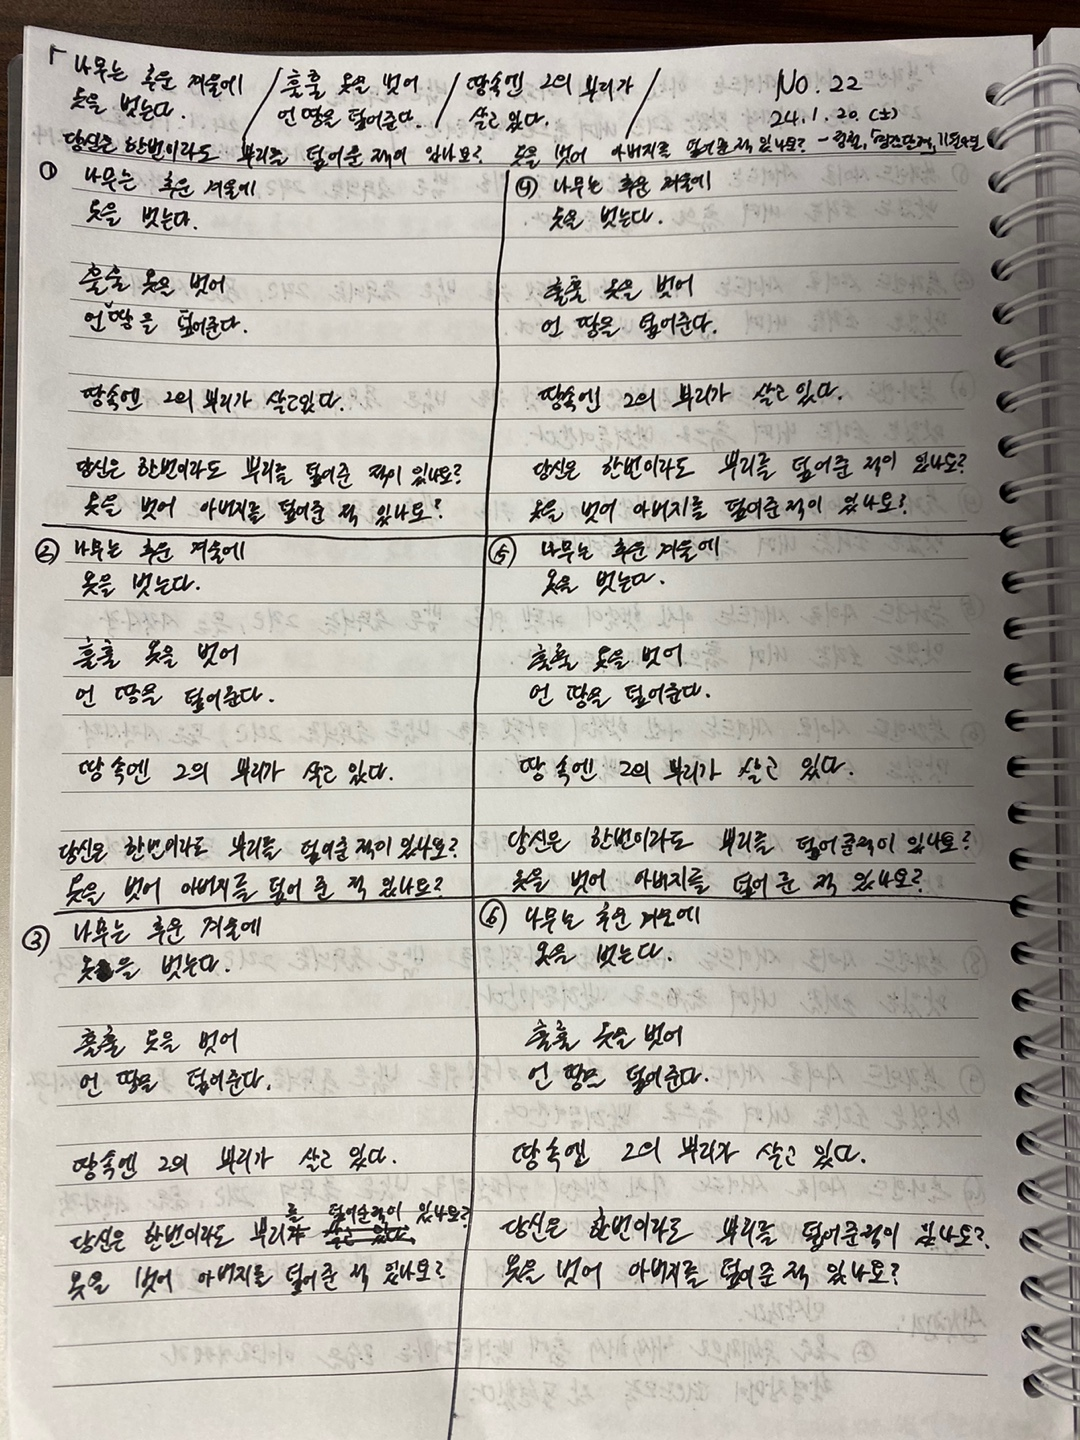 「나무는 추운 겨울에 / 훌훌 옷을 벗어 / 땅속엔 그의 뿌리가 / No. 22
옷을 벗는다. 언 땅을 덮어준다. 살고 있다. 24.1.20.(土)
당신은 한번이라도 뿌리를 덮어준 적이 있나요? 옷을 벗어 아버지를 덮어준 적 있나요? -
① 나무는 추운 겨울에
옷을 벗는다.
훌훌 옷을 벗어
언 땅을 덮어준다.
땅속엔 그의 뿌리가 살고있다.
당신은 한번이라도 뿌리를 덮어준 적이 있나요?
옷을 벗어 아버지를 덮어준 적 있나요?
② 나무는 추운 겨울에
옷을 벗는다.
훌훌 옷을 벗어
언 땅을 덮어준다.
땅속엔 그의 뿌리가 살고 있다.
당신은 한번이라도 뿌리를 덮어준 적이 있나요?
옷을 벗어 아버지를 덮어 준 적 있나요?
③ 나무는 추운 겨울에
옷을 벗는다.
훌훌 옷을 벗어
언 땅을 덮어준다.
땅속엔 그의 뿌리가 살고 있다.
당신은 한번이라도 뿌리를 덮어준적이 있나요?
옷을 벗어 아버지를 덮어준 적 있나요?
④ 나무는 추운 겨울에
옷을 벗는다.
훌훌 옷을 벗어
언 땅을 덮어준다.
땅속엔 그의 뿌리가 살고 있다.
당신은 한번이라도 뿌리를 덮어준 적이 있나요?
옷을 벗어 아버지를 덮어준적이 있나요?
⑤ 나무는 추운 겨울에
옷을 벗는다.
훌훌 옷을 벗어
언 땅을 덮어준다.
땅속엔 그의 뿌리가 살고 있다.
당신은 한번이라도 뿌리를 덮어준적이 있나요?
옷을 벗어 아버지를 덮어 준 적 있나요?
⑥ 나무는 추운 겨울에
옷을 벗는다.
훌훌 옷을 벗어
언 땅을 덮어준다.
땅속엔 그의 뿌리가 살고 있다.
당신은 한번이라도 뿌리를 덮어준적이 있나요?
옷을 벗어 아버지를 덮어준 적 있나요?